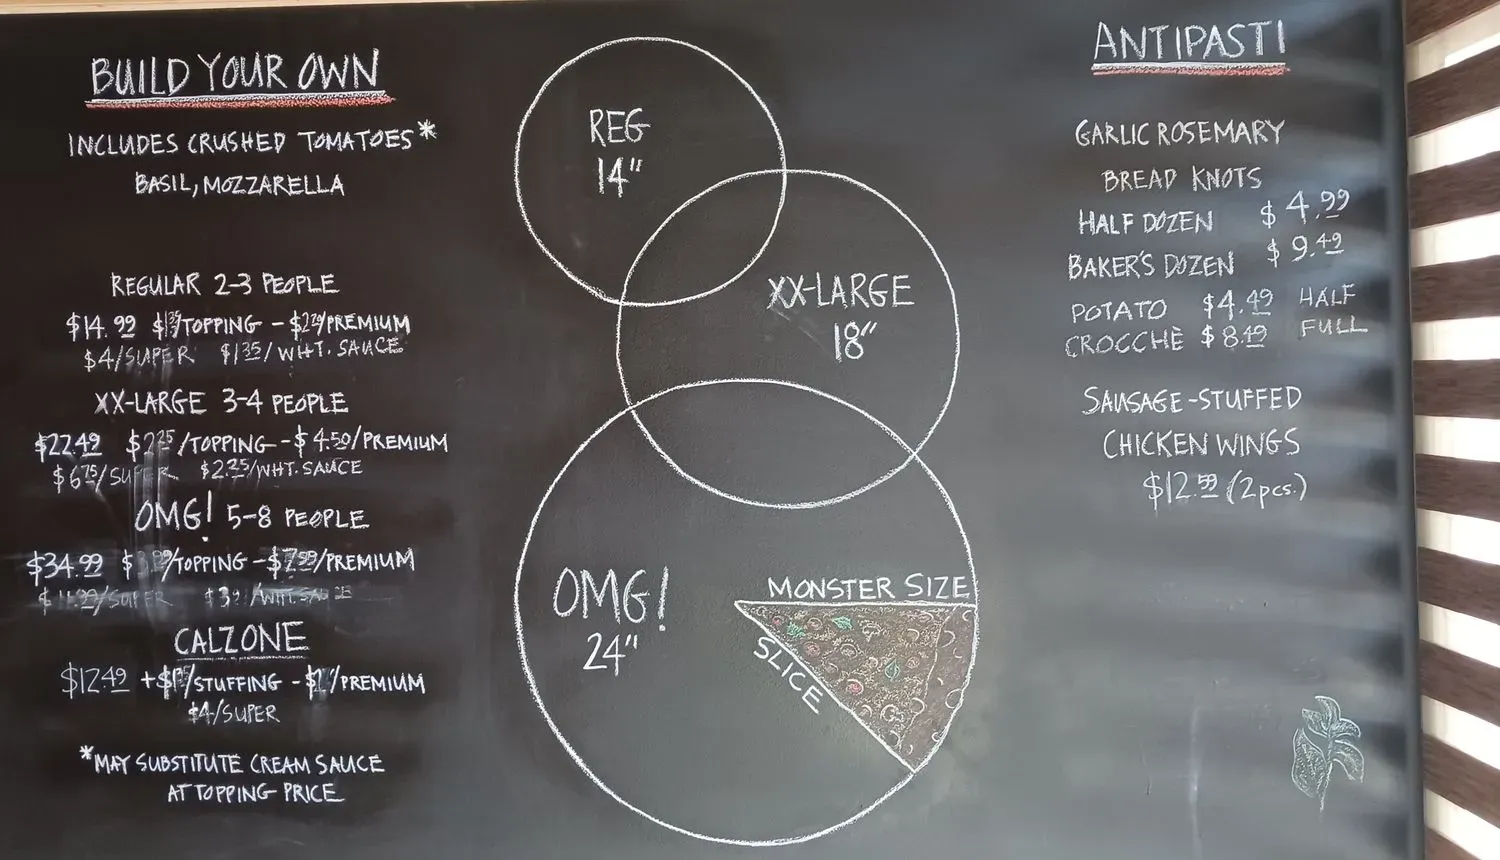 BUILD YOUR OWN
INCLUDES CRUSHED TOMATOES*
BASIL, MOZZARELLA
REGULAR 2-3 PEOPLE
$14.99 /TOPPING - /PREMIUM
$4/SUPER $1.35/WHT. SAUCE
XX-LARGE 3-4 PEOPLE
$22.49 $2.25/TOPPING - $4.50/PREMIUM
$6.75/SUPER $2.25/WHT. SAUCE
OMG! 5-8 PEOPLE
$34.99 /TOPPING - /PREMIUM
/SUPER /WHT. SAUCE
CALZONE
$12.49 + /STUFFING - /PREMIUM
$4/SUPER
*MAY SUBSTITUTE CREAM SAUCE
AT TOPPING PRICE
REG
14"
XX-LARGE
18"
OMG!
24"
MONSTER SIZE
SLICE
ANTIPASTI
GARLIC ROSEMARY
BREAD KNOTS
HALF DOZEN $4.99
BAKER'S DOZEN $9.49
POTATO $4.49 HALF
CROCCHÈ $8.49 FULL
SAUSAGE-STUFFED
CHICKEN WINGS
$12.99 (2pcs.)